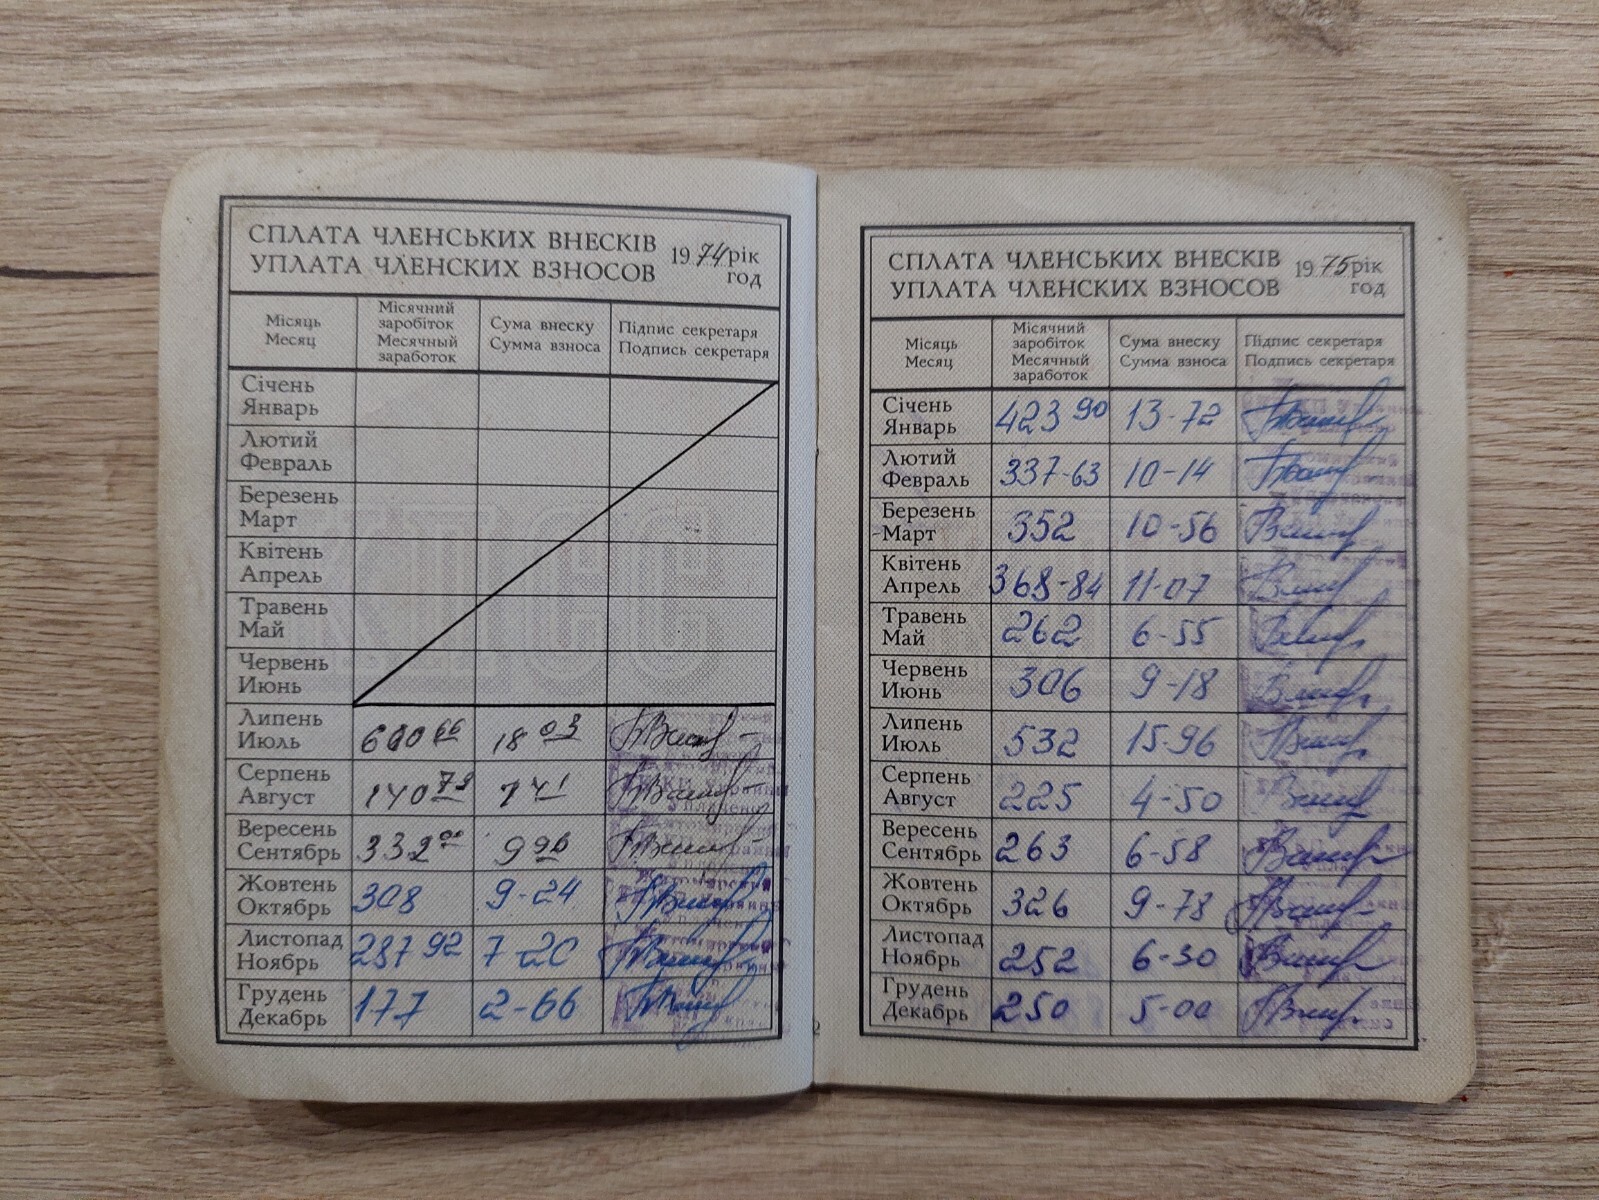 СПЛАТА ЧЛЕНСЬКИХ ВНЕСКІВ
УПЛАТА ЧЛЕНСКИХ ВЗНОСОВ
1974 рік
год
Місяць
Месяц
Місячний
заробіток
Месячный
заработок
Сума внеску
Сумма взноса
Підпис секретаря
Подпись секретаря
Січень
Январь
Лютий
Февраль
Березень
Март
Квітень
Апрель
Травень
Май
Червень
Июнь
Липень
Июль 18 03
Серпень
Август 140 73
Вересень
Сентябрь 332 00 9 96
Жовтень
Октябрь 308 9-24
Листопад
Ноябрь 287 92 7-20
Грудень
Декабрь 177 2-66
СПЛАТА ЧЛЕНСЬКИХ ВНЕСКІВ
УПЛАТА ЧЛЕНСКИХ ВЗНОСОВ
1975 рік
год
Місяць
Месяц
Місячний
заробіток
Месячный
заработок
Сума внеску
Сумма взноса
Підпис секретаря
Подпись секретаря
Січень
Январь 423 90 13-72
Лютий
Февраль 337-63 10-14
Березень
Март 352 10-56
Квітень
Апрель 368-84 11-07
Травень
Май 262 6-55
Червень
Июнь 306 9-18
Липень
Июль 532 15-96
Серпень
Август 225 4-50
Вересень
Сентябрь 263 6-58
Жовтень
Октябрь 326 9-78
Листопад
Ноябрь 252 6-30
Грудень
Декабрь 250 5-00